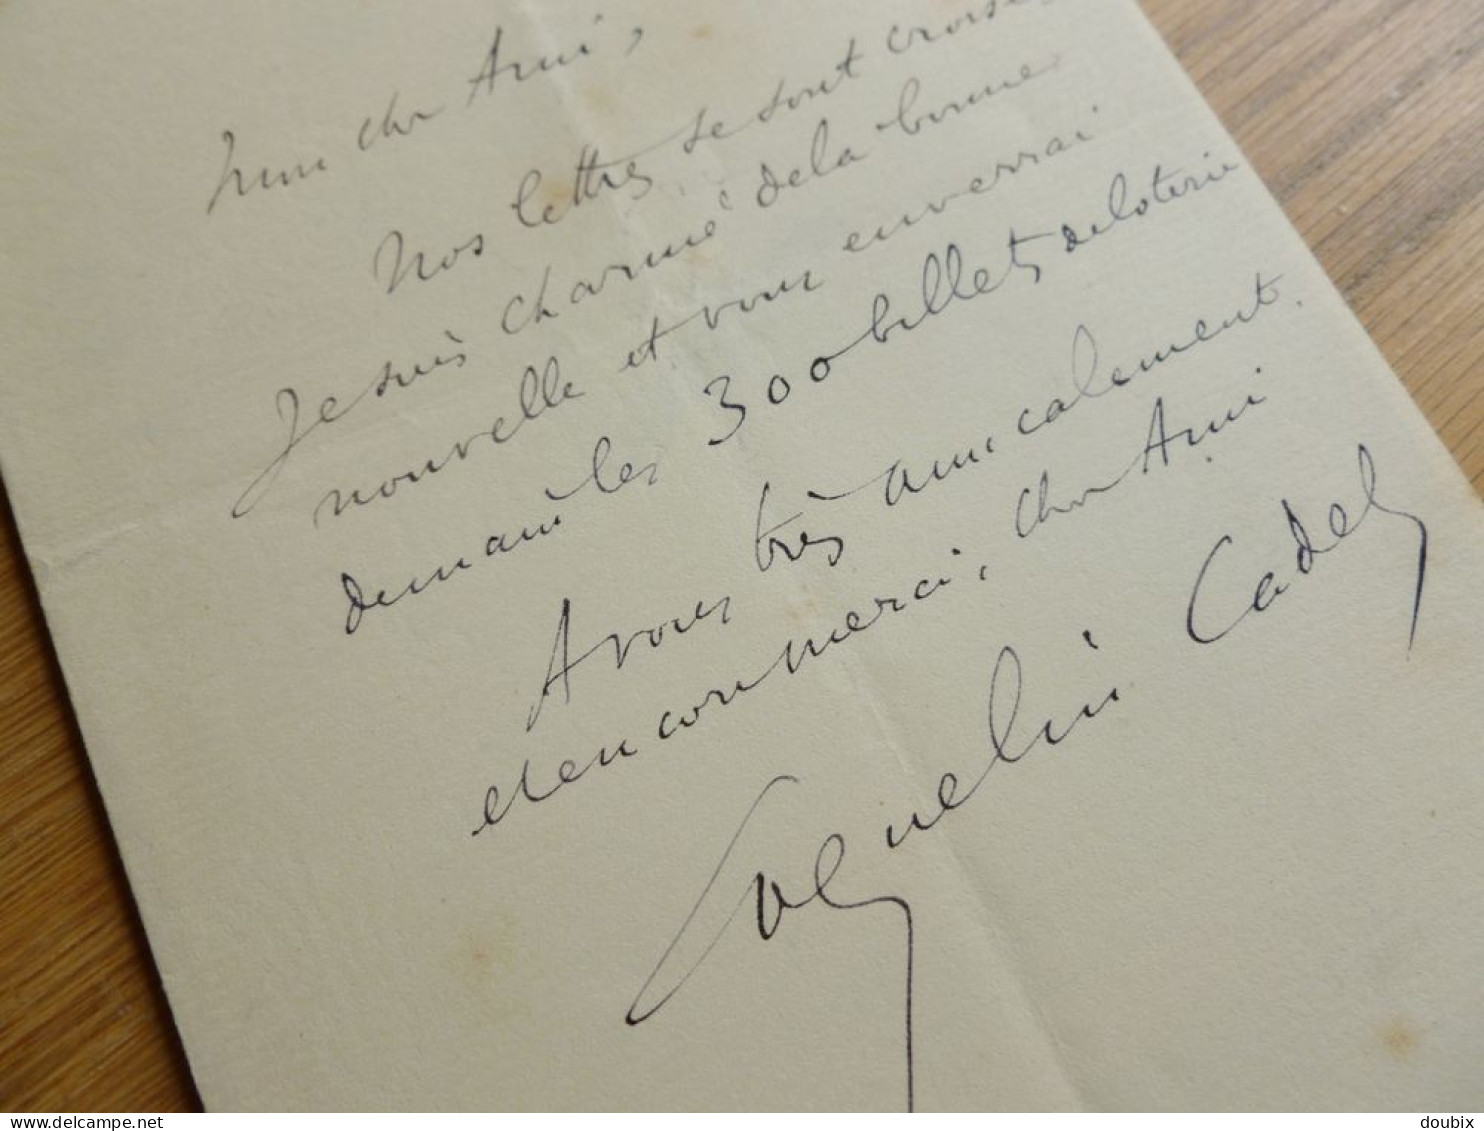 Mon cher Ami,
Nos lettres se sont croisées.
Je suis charmé de la bonne
nouvelle et vous enverrai
demain les 300 billets de loterie
A vous très amicalement.
et encore merci, cher Ami
Coquelin Cadet
delcampe.net
doubix